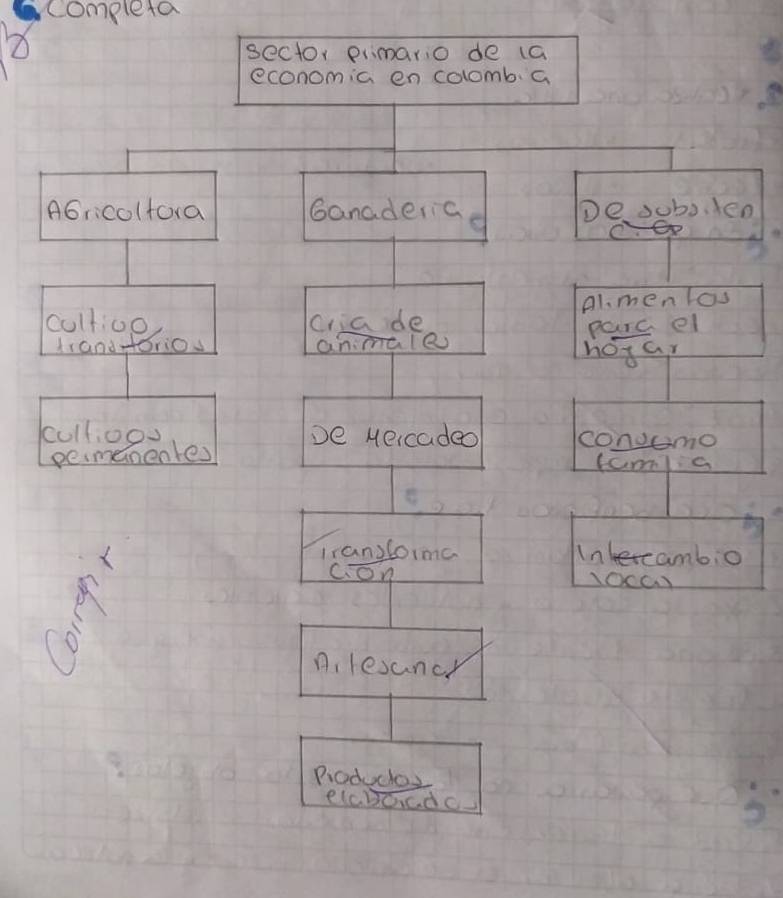 6 Completa
sector primario de la
economia en colombia
AGricoltora
Ganaderia
De subsisten
cia
cultivo
transitorios
Cria de
animales
Alimentos
para el
hogar
cultivos
permanentes
De Mercadeo
consumo
familia
Transforma
ción
Intercambio
local
Corregir
Artesanal
Productos
elaborados